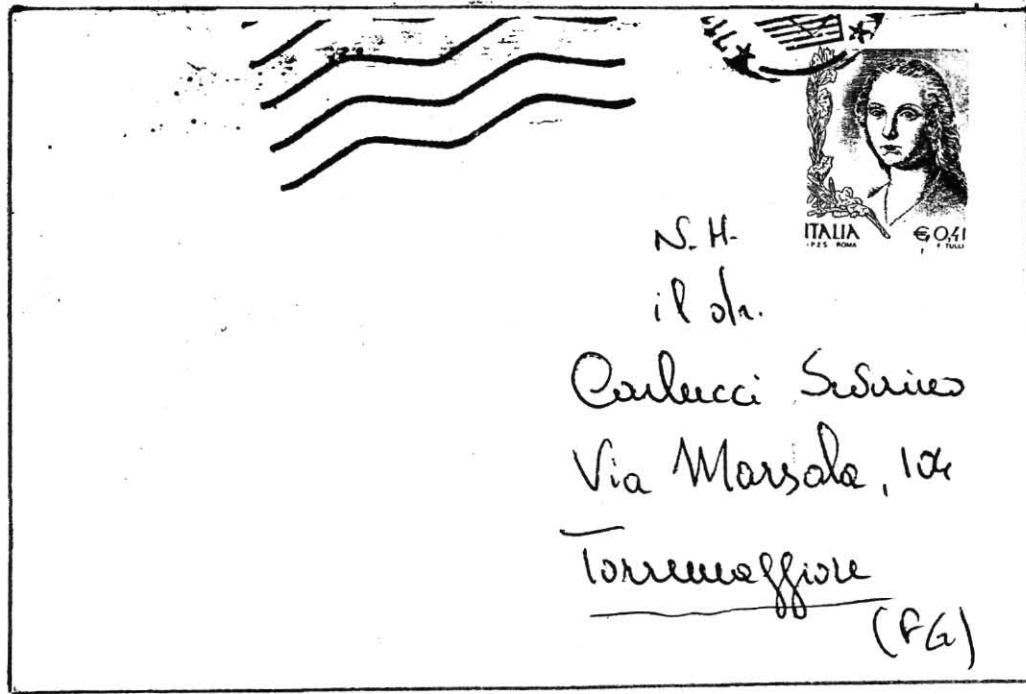 ITALIA €0,41
I.P.Z.S. ROMA F. TULLI
N. H.
il dr.
Carlucci Severino
Via Marsala, 104
Torremaggiore
(FG)